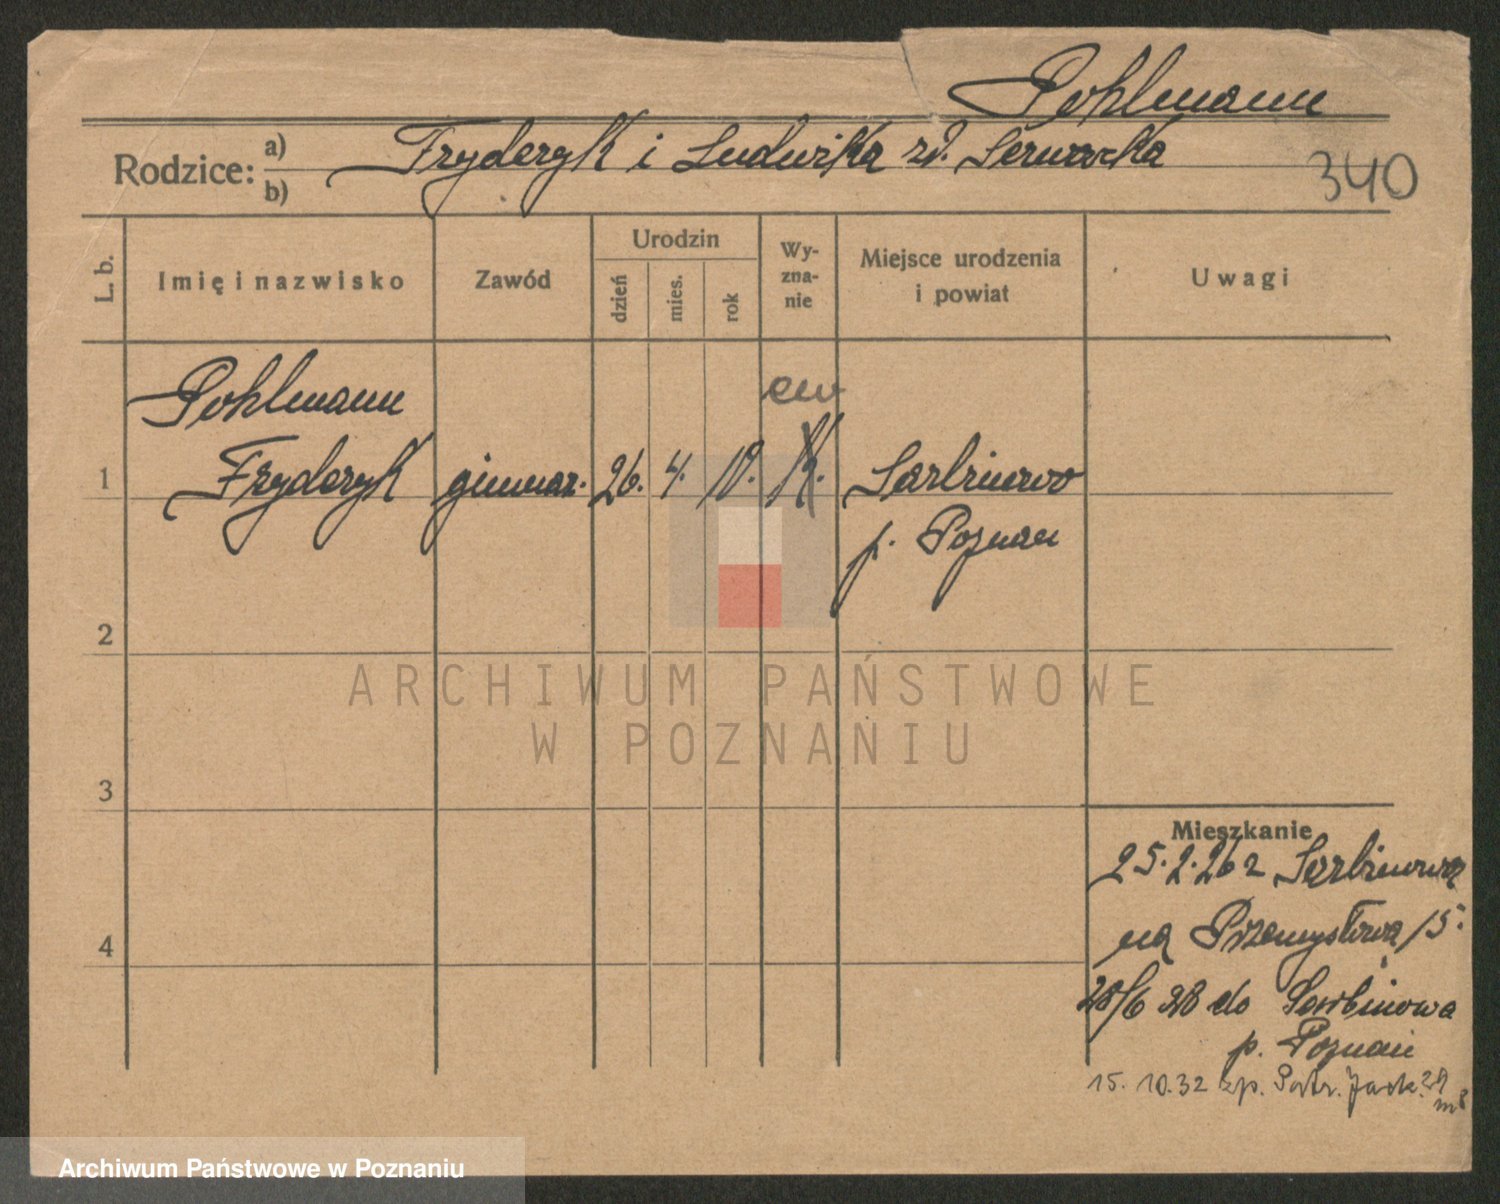 Pohlmann
Rodzice: a) Fryderyk i Ludwika zd.
b)
340
L. b.
Imię i nazwisko
Zawód
Urodzin
dzień
mies.
rok
Wy-
zna-
nie
Miejsce urodzenia
i powiat
Uwagi
Pohlmann
ew
1 Fryderyk gimnaz. 26. 4. 10. K. Sarbinowo
p. Poznań
2
3
4
ARCHIWUM PAŃSTWOWE
W POZNANIU
Mieszkanie
25.2.26 z Sarbinowa
na Przemysłowa 15.
28/6 28 do Sarbinowa
p. Poznań
15. 10.32 zp. Jack.
Archiwum Państwowe w Poznaniu